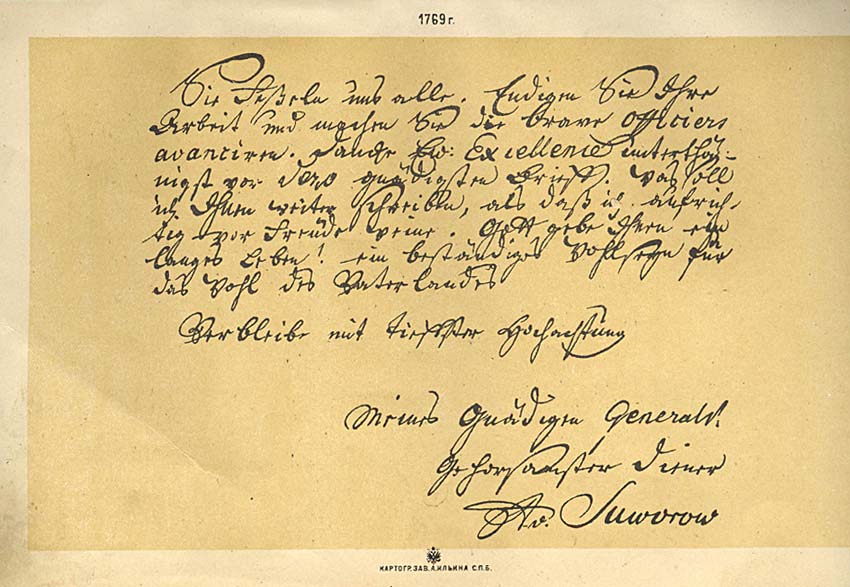 1769 г.
Sie Feßeln uns alle. Endigen Sie Ihre
Arbeit und machen Sie die brave Officiers
avanciren. Danke Ew: Excellence unterthä-
nigst vor Dero gnädigsten Brieff. Was soll
ich Ihnen weiter schreiben, als daß ich aufrich-
tig vor Freude weine. Gott gebe Ihnen ein
langes Leben! ein beständiges Wohlseyn für
das Wohl des Vaterlandes
Verbleibe mit tieffster Hochachtung
Meines Gnädigen Generals.
Gehorsamster Diener
Suworow
КАРТОГР. ЗАВ. А. ИЛЬИНА С.П.Б.